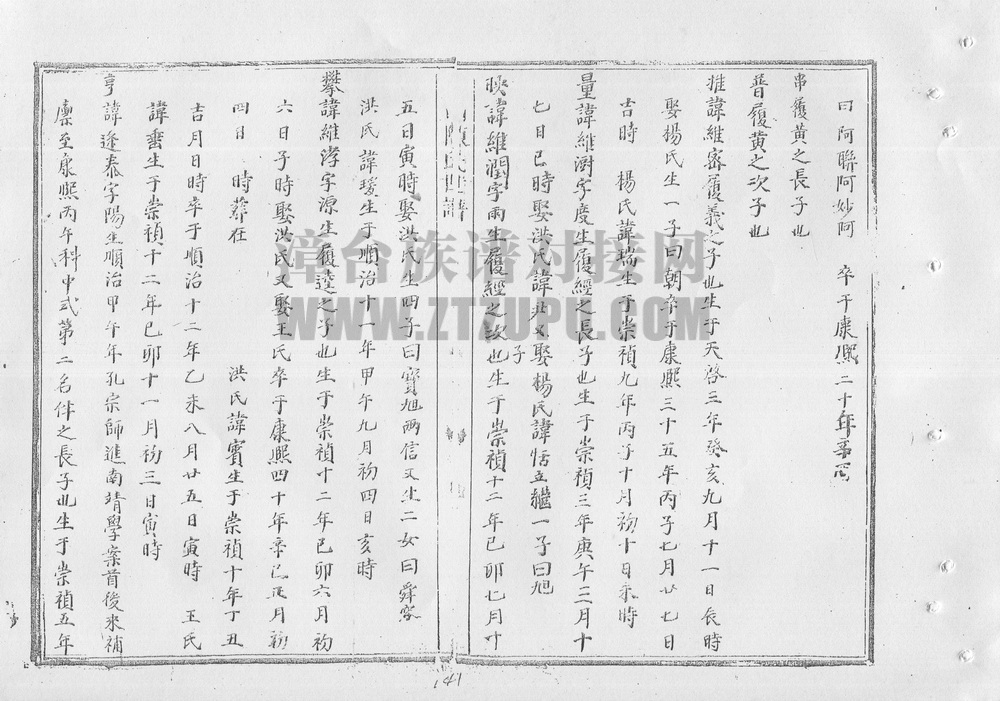 曰阿聯阿妙阿 卒于康熙二十年辛酉
串履黃之長子也
普履黃之次子也
推諱維密履義之子也生于天啓三年癸亥九月十一日辰時
娶楊氏生一子曰朝卒于康熙三十五年丙子七月廿七日
吉時 楊氏諱瑞生于崇禎九年丙子十月初十日未時
量諱維澍字度生履經之長子也生于崇禎三年庚午三月十
七日巳時娶洪氏諱 又娶楊氏諱恬立繼一子曰旭
映諱維潤字雨生履經之次子也生于崇禎十二年己卯七月廿
五日寅時娶洪氏生四子曰寶旭兩信又生二女曰舜容
洪氏諱瑷生于順治十一年甲午九月初四日亥時
攀諱維淳字源生履達之子也生于崇禎十二年己卯六月初
六日子時娶洪氏又娶王氏卒于康熙四十年辛巳正月初
四日 時葬在 洪氏諱賓生于崇禎十年丁丑
吉月日時卒于順治十二年乙未八月廿五日寅時 王氏
諱 生于崇禎十二年己卯十一月初三日寅時
亨諱逢泰字陽生順治甲午年孔宗師進南靖學案首後來補
廩至康熙丙午科中式第二名伴之長子也生于崇禎五年
141
漳台族谱对接网
WWW.ZTZUPU.COM